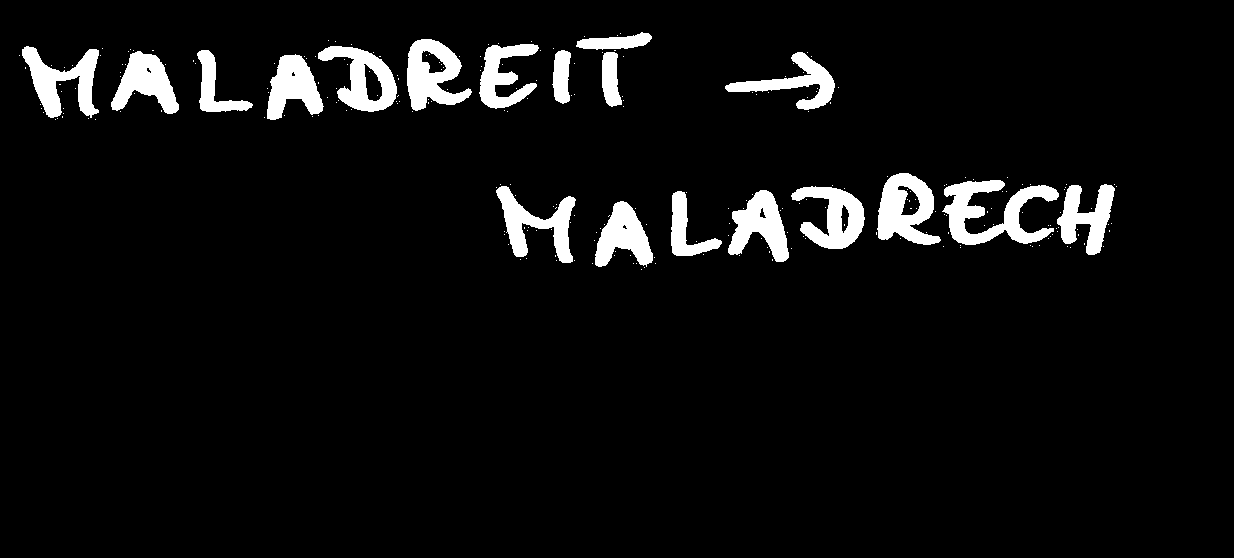 MALADREIT →
MALADRECH